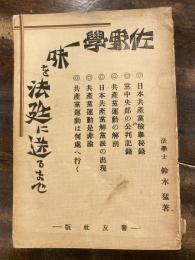 佐野學一味
を法廷に送るまで
◎日本共產黨檢擧秘錄
◎黨中央部の公判記錄
◎共產黨運動の解剖
◎日本共產黨解黨派の出現
◎共產黨運動は是か非か
◎共產黨運動は何處へ行く
法學士 鈴木猛著
警友社版